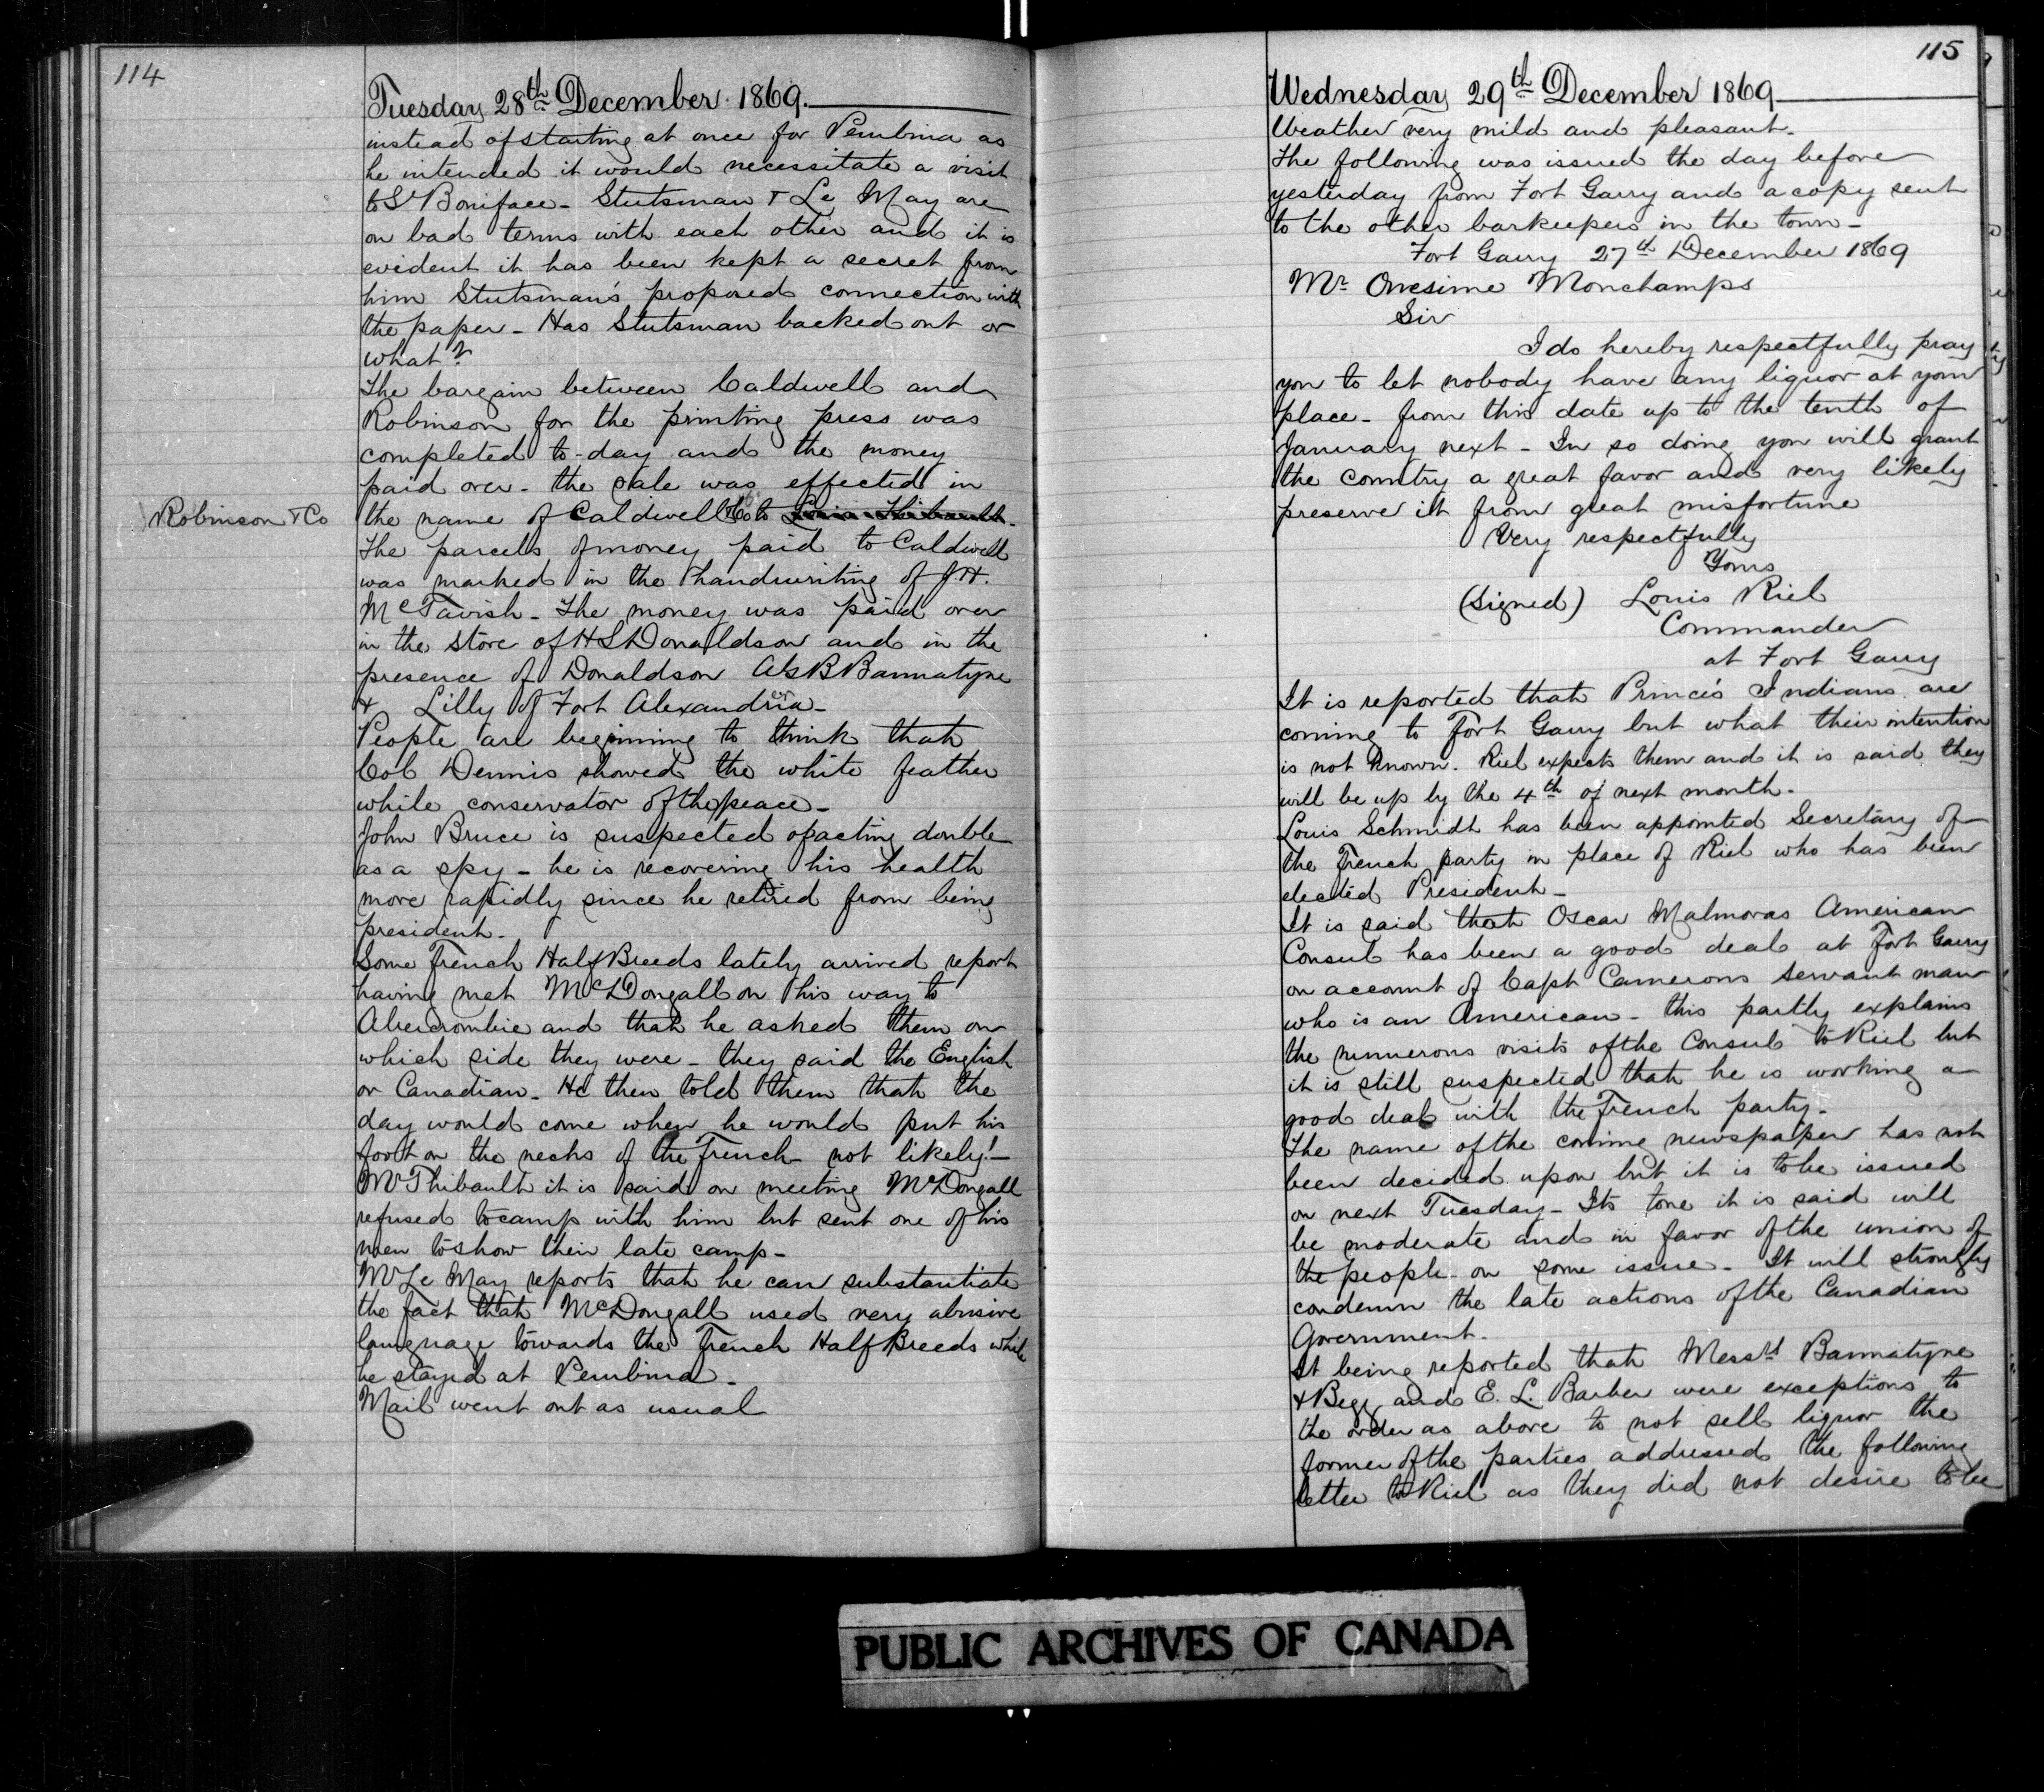 114
Tuesday 28th December 1869.
instead of starting at once for Pembina as
he intended it would necessitate a visit
to St Boniface - Stutsman & Le May are
on bad terms with each other and it is
evident it has been kept a secret from
him Stutsman's proposed connection with
the paper - Has Stutsman backed out or
what?
The bargain between Caldwell and
Robinson for the printing press was
completed to-day and the money
paid over - the sale was effected in
the name of Caldwell to Louis Thibeault -
Robinson & Co
The parcels of money paid to Caldwell
was marked in the handwriting of J.H.
McTavish - The money was paid over
in the store of H S Donaldson and in the
presence of Donaldson A G B Bannatyne
& Lilly of Fort Alexandria -
People are beginning to think that
Col Dennis showed the white feather
while conservator of the peace -
John Bruce is suspected of acting double
as a spy - he is recovering his health
more rapidly since he retired from being
president -
Some French Half Breeds lately arrived report
having met McDougall on his way to
Abercrombie and that he asked them on
which side they were - they said the English
or Canadian - He then told them that the
day would come when he would put his
foot on the necks of the French - not likely! -
Mr Thibault it is said on meeting McDougall
refused to camp with him but sent one of his
men to show their late camp -
Mr Le May reports that he can substantiate
the fact that McDougall used very abusive
language towards the French Half Breeds while
he stayed at Pembina -
Mail went out as usual
115
Wednesday 29th December 1869
Weather very mild and pleasant -
The following was issued the day before
yesterday from Fort Garry and a copy sent
to the other barkeepers in the town -
Fort Garry 27th December 1869
Mr Onesime Monchamps
Sir
I do hereby respectfully pray
you to let nobody have any liquor at your
place - from this date up to the tenth of
January next - In so doing you will grant
the country a great favor and very likely
preserve it from great misfortune
Very respectfully
Yours
(Signed) Louis Riel
Commander
at Fort Garry
It is reported that Prince's Indians are
coming to Fort Garry but what their intention
is not known. Riel expects them and it is said they
will be up by the 4th of next month -
Louis Schmidt has been appointed Secretary of
the French party in place of Riel who has been
elected President -
It is said that Oscar Malmoras American
Consul has been a good deal at Fort Garry
on account of Capt Camerons servant man
who is an American - this partly explains
the numerous visits of the Consul to Riel but
it is still suspected that he is working a
good deal with the French party -
The name of the coming newspaper has not
been decided upon but it is to be issued
on next Tuesday - Its tone it is said will
be moderate and in favor of the union of
the people on some issue - It will strongly
condemn the late actions of the Canadian
Government.
It being reported that Messrs Bannatyne
& Begg and E. L. Barber were exceptions to
the order as above to not sell liquor the
former of the parties addressed the following
letter to Riel as they did not desire to be
PUBLIC ARCHIVES OF CANADA